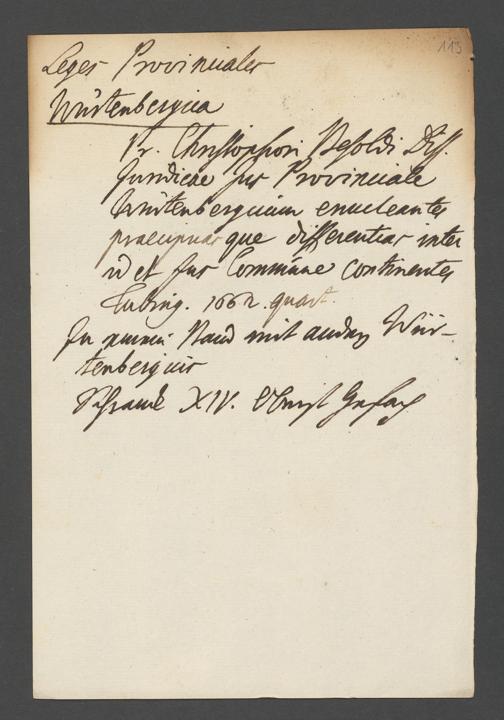 113
Leges Provinciales
Würtenbergica
Pr. Christophori Besoldi Diss.
Juridicae Jus Provinciale
Würtenbergicum enucleantes
praecipuasque differentias inter
id et Jus Commune continentes
Tubing. 1662. quart.
In einem Band mit andern Wür-
tenbergicis
Schrank XIV. Oberst Gefach